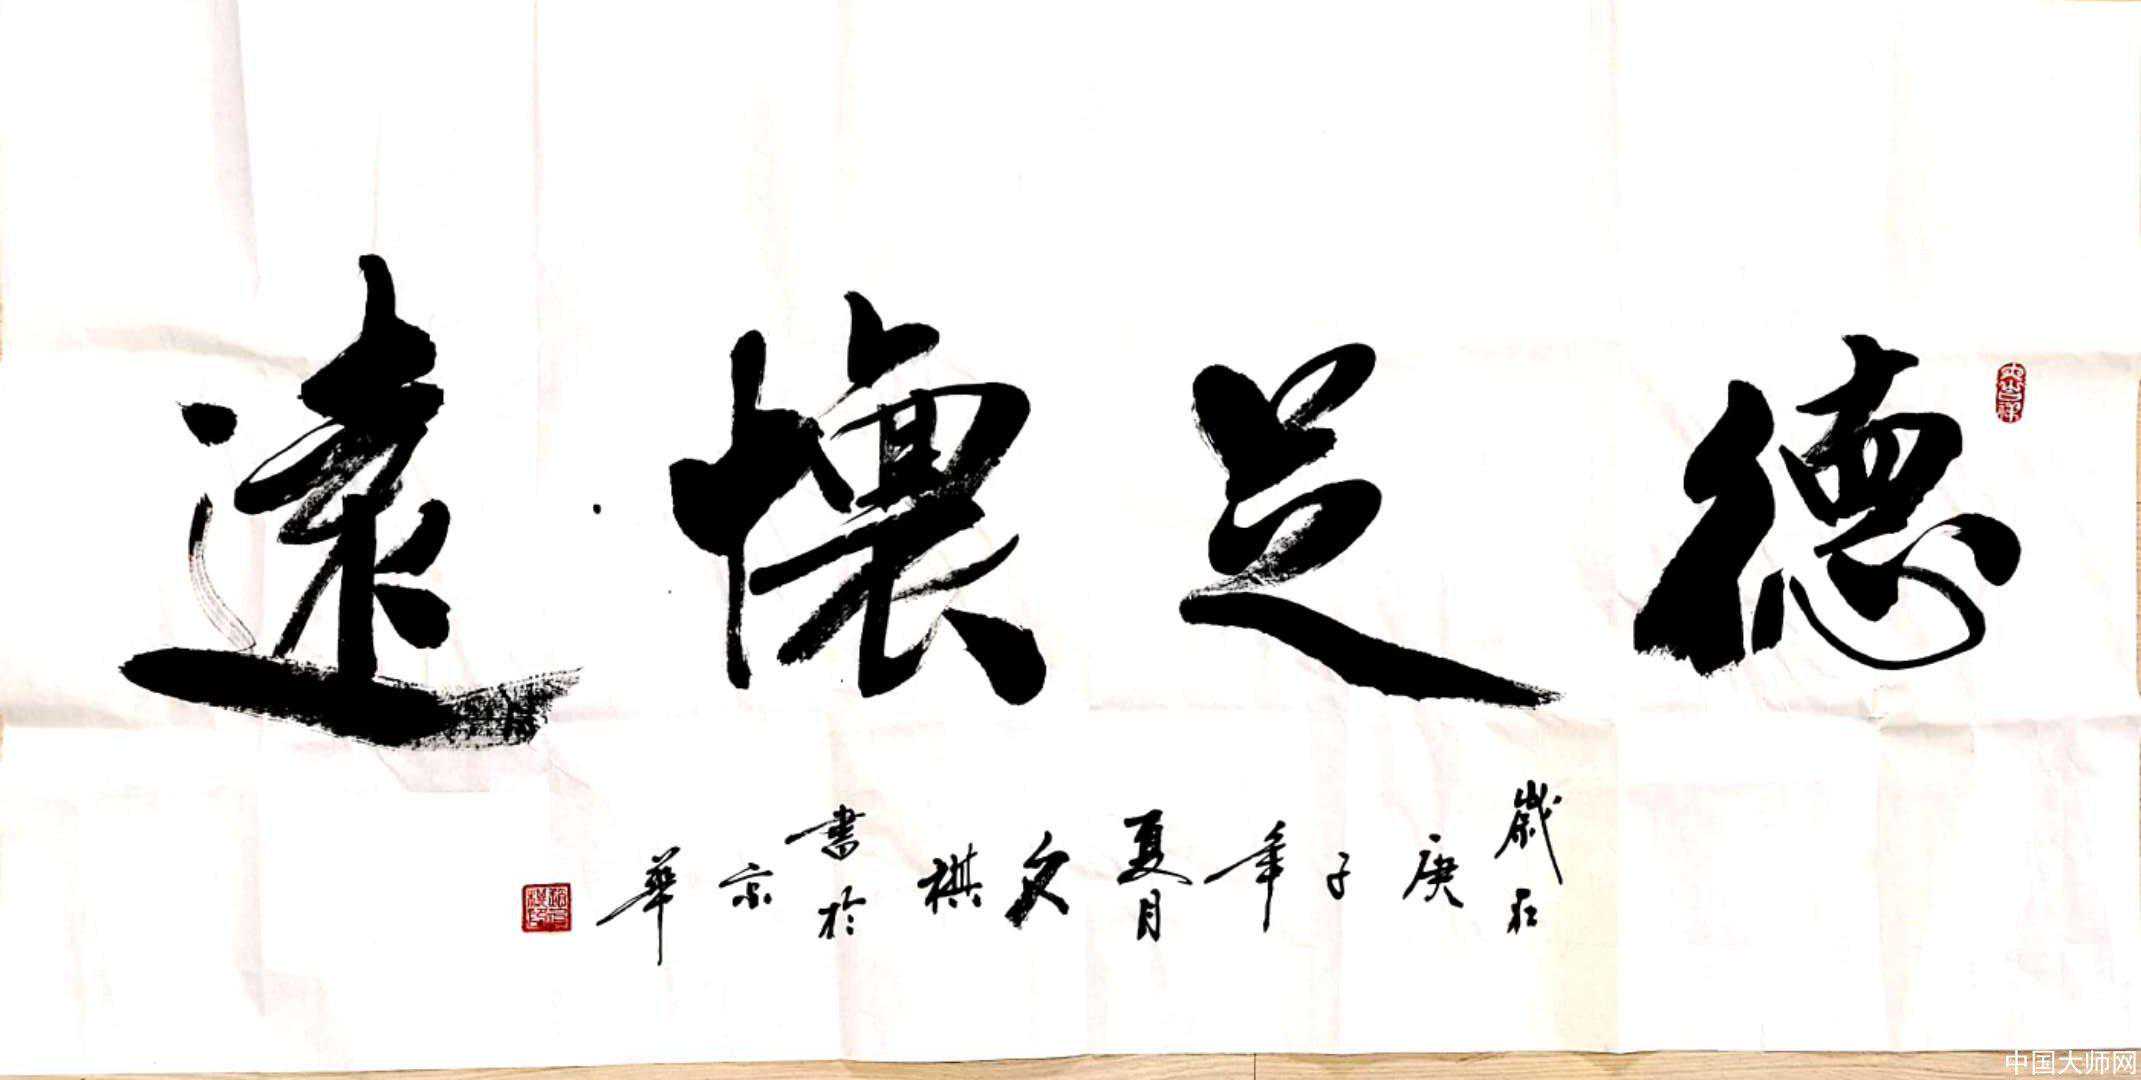 德足懷遠
歲在庚子年夏月文祺書於京華
中国大师网